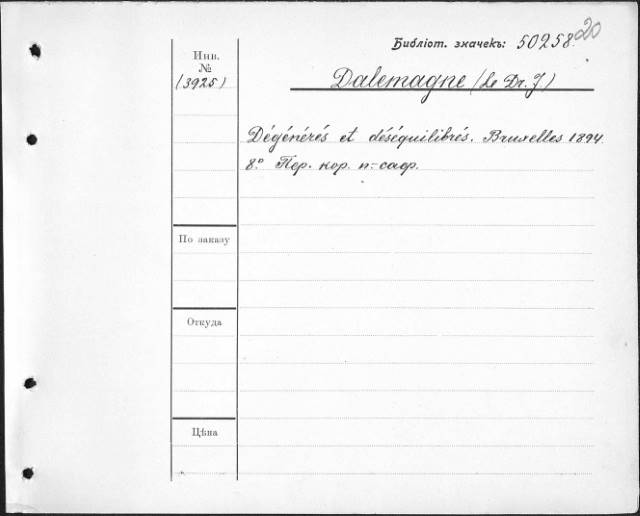 Библіот. значекъ: 50258. 20
Инв.
№
(3925)
Dalemagne (Le Dr. J)
Dégénérés et déséquilibrés. Bruxelles 1894.
8.° Пер. кор. п.-саф.
По заказу
Откуда
Цѣна